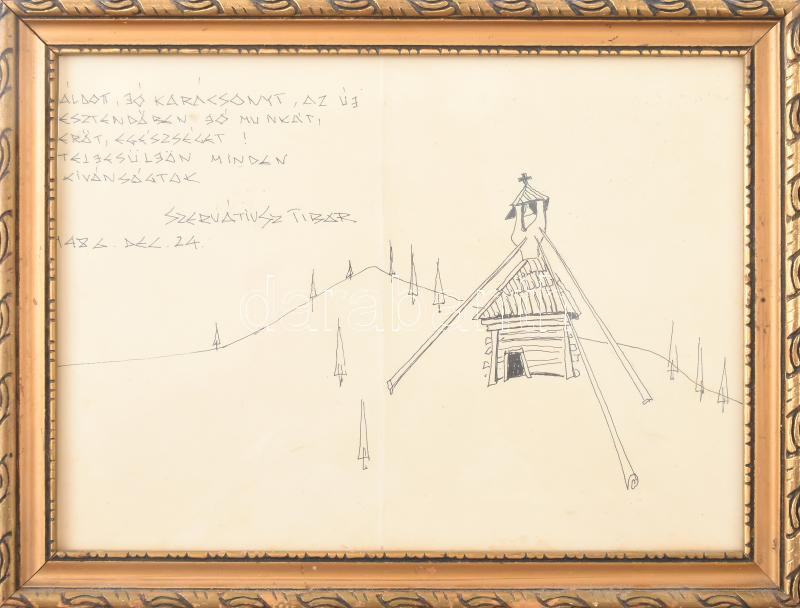 ÁLDOTT, JÓ KARÁCSONYT, AZ ÚJ
ESZTENDŐBEN JÓ MUNKÁT,
ERŐT, EGÉSZSÉGET !
TELJESÜLJÖN MINDEN
KIVÁNSÁGTOK
SZERVÁTIUSZ TIBOR
1986. DEC. 24.